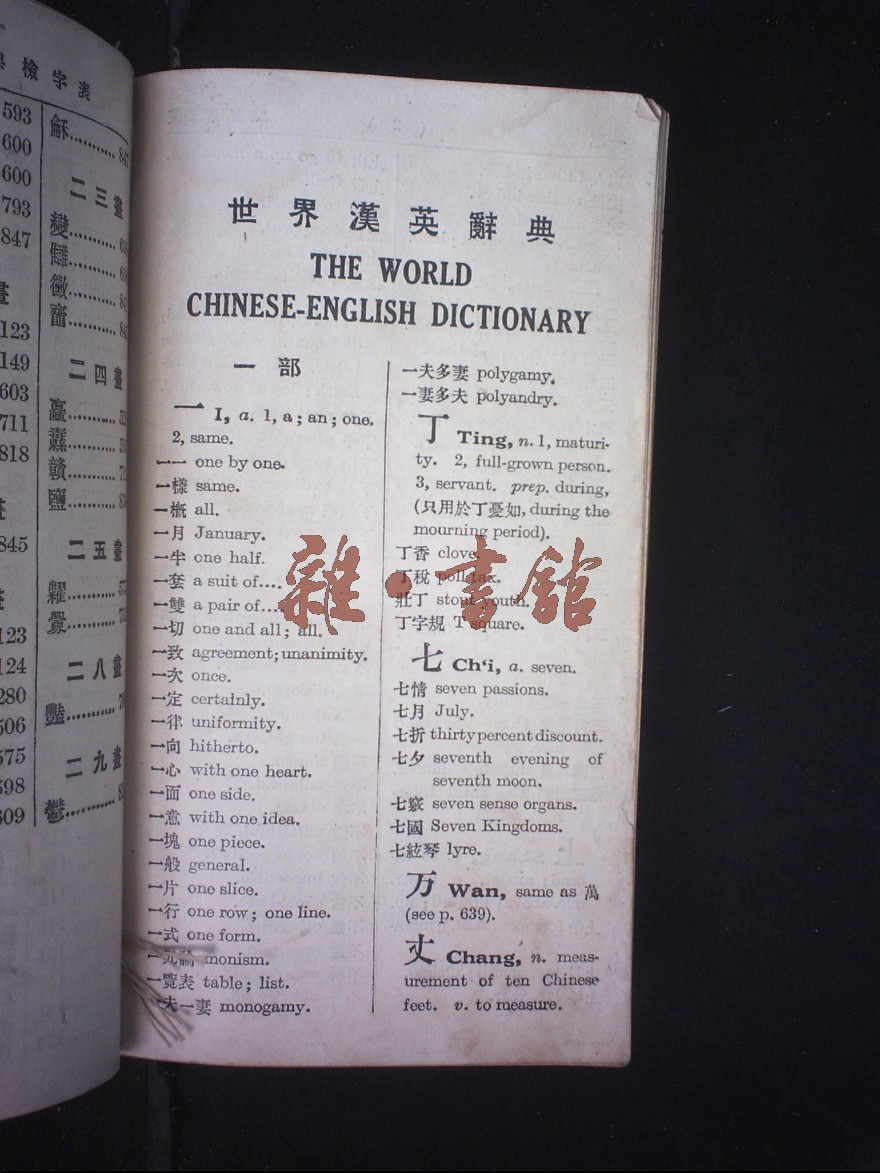 檢字表
593
600
600
793
847
123
149
603
711
818
845
123
124
280
506
575
598
609
龢...........847
二三畫
二四畫
鹽...........
二五畫
二八畫
豔...........
二九畫
鬱...........
世界漢英辭典
THE WORLD
CHINESE-ENGLISH DICTIONARY
一部
一 I, a. 1, a; an; one.
2, same.
一一 one by one.
一樣 same.
一概 all.
一月 January.
一半 one half.
一套 a suit of....
一雙 a pair of....
一切 one and all; all.
一致 agreement; unanimity.
一次 once.
一定 certainly.
一律 uniformity.
一向 hitherto.
一心 with one heart.
一面 one side.
一意 with one idea.
一塊 one piece.
一般 general.
一片 one slice.
一行 one row; one line.
一式 one form.
一元論 monism.
一覽表 table; list.
一夫一妻 monogamy.
一夫多妻 polygamy.
一妻多夫 polyandry.
丁 Ting, n. 1, maturi-
ty. 2, full-grown person.
3, servant. prep. during,
(只用於丁憂如, during the
mourning period).
丁香 clove.
丁稅 poll tax.
壯丁 stout youth.
丁字規 T square.
七 Ch‘i, a. seven.
七情 seven passions.
七月 July.
七折 thirty percent discount.
七夕 seventh evening of
seventh moon.
七竅 seven sense organs.
七國 Seven Kingdoms.
七絃琴 lyre.
万 Wan, same as 萬
(see p. 639).
丈 Chang, n. meas-
urement of ten Chinese
feet. v. to measure.
雜·書館